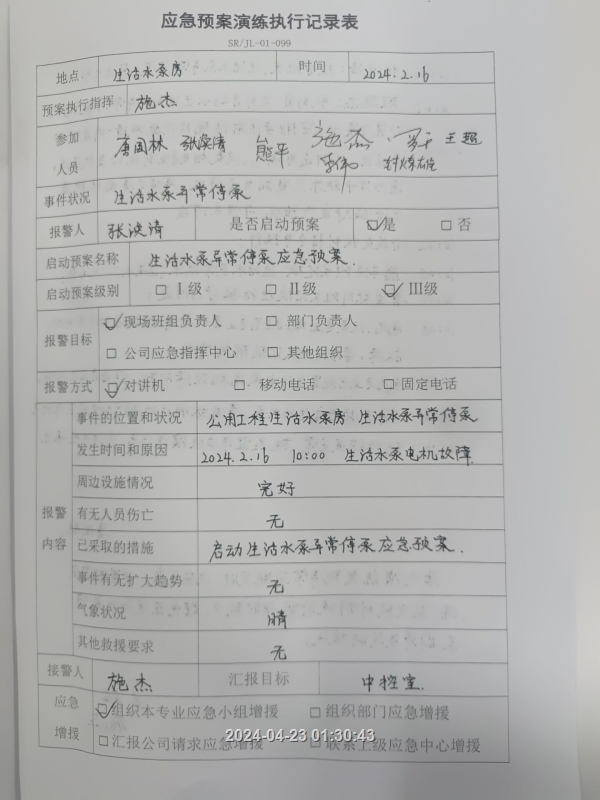 应急预案演练执行记录表
SR/JL-01-099
地点 生活水泵房 时间 2024.2.16
预案执行指挥 施杰
参加人员 唐国林 张淡清 熊平 施杰 王超
李伟
事件状况 生活水泵异常停泵
报警人 张淡清 是否启动预案 ☑是 □否
启动预案名称 生活水泵异常停泵应急预案.
启动预案级别 □Ⅰ级 □Ⅱ级 ☑Ⅲ级
报警目标 ☑现场班组负责人 □部门负责人
□公司应急指挥中心 □其他组织
报警方式 ☑对讲机 □移动电话 □固定电话
报警内容
事件的位置和状况 公用工程生活水泵房 生活水泵异常停泵
发生时间和原因 2024.2.16 10:00 生活水泵电机故障.
周边设施情况 完好
有无人员伤亡 无
已采取的措施 启动生活水泵异常停泵应急预案.
事件有无扩大趋势 无
气象状况 晴
其他救援要求 无
接警人 施杰 汇报目标 中控室.
应急增援 ☑组织本专业应急小组增援 □组织部门应急增援
□汇报公司请求应急增援 □联系上级应急中心增援
2024-04-23 01:30:43